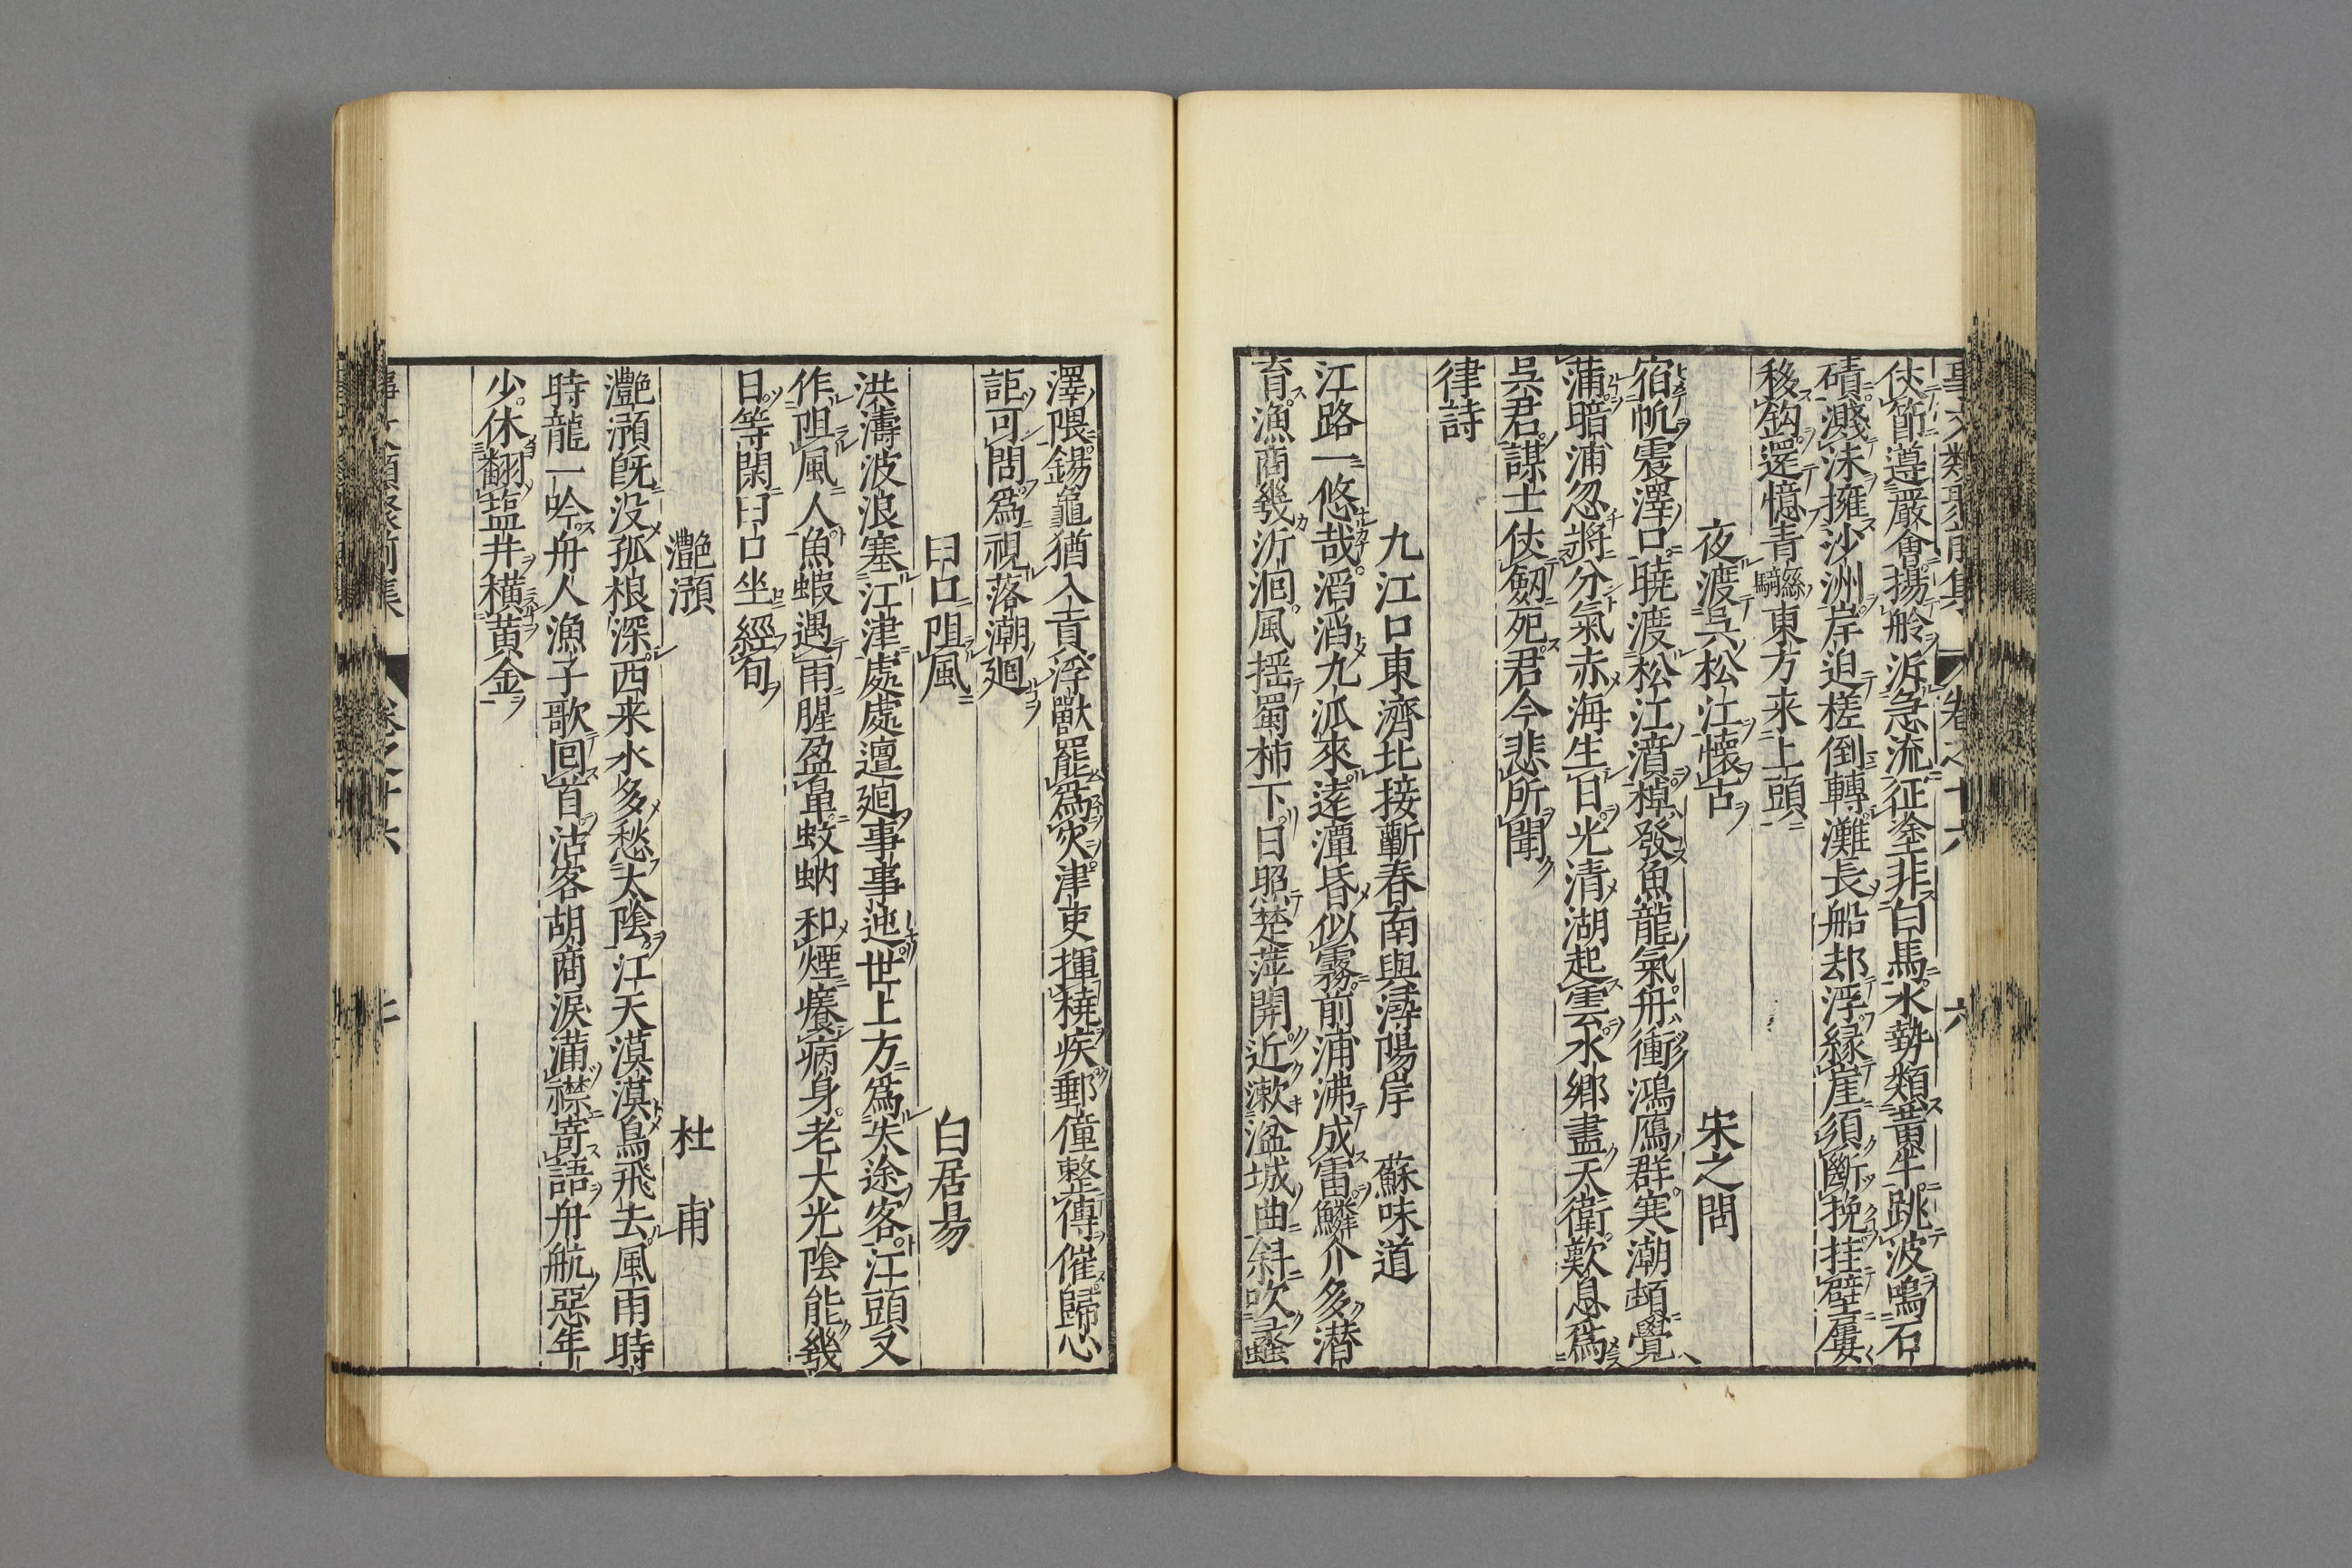 事文類聚前集 卷之十六 六
仗節遵嚴會揚舲泝急流征塗非白馬水勢類黃牛跳波鳴石
磧濺沫擁沙洲岸迫槎倒轉灘長船却浮緣崖須斷挽挂壁屢
移鈎還憶青絲騎東方来上頭
夜渡呉松江懷古 宋之問
宿帆震澤口曉渡松江濆棹發魚龍氣舟衝鴻鴈群寒潮頓覺
蒲暗浦忽將分氣赤海生日光清湖起雲水鄉盡天衛歎息爲
呉君謀士仗劔死君今悲所聞
律詩
九江口東濟北接蘄春南與潯陽岸 蘇味道
江路一悠哉滔滔九派來遠潭昏似霧前浦沸成雷鱗介多潜
育漁商幾泝洄風揺蜀柿下日照楚萍開近漱湓城曲斜吹蠡
澤隈錫龜猶入貢浮獸罷爲灾津吏揮橈疾郵僮整傳催歸心
詎可問爲視落潮廻
臼口阻風 白居易
洪濤波浪塞江津處處邅廻事事迍世上方爲失途客江頭又
作阻風人魚蝦遇雨腥盈鼻蚊蚋和煙癢病身老大光陰能幾
日等閑臼口坐經旬
灔澦 杜甫
灔澦既没孤根深西来水多愁太陰江天漠漠鳥飛去風雨時
時龍一吟舟人漁子歌回首沽客胡商淚滿襟寄語舟航惡年
少休翻塩井橫黃金